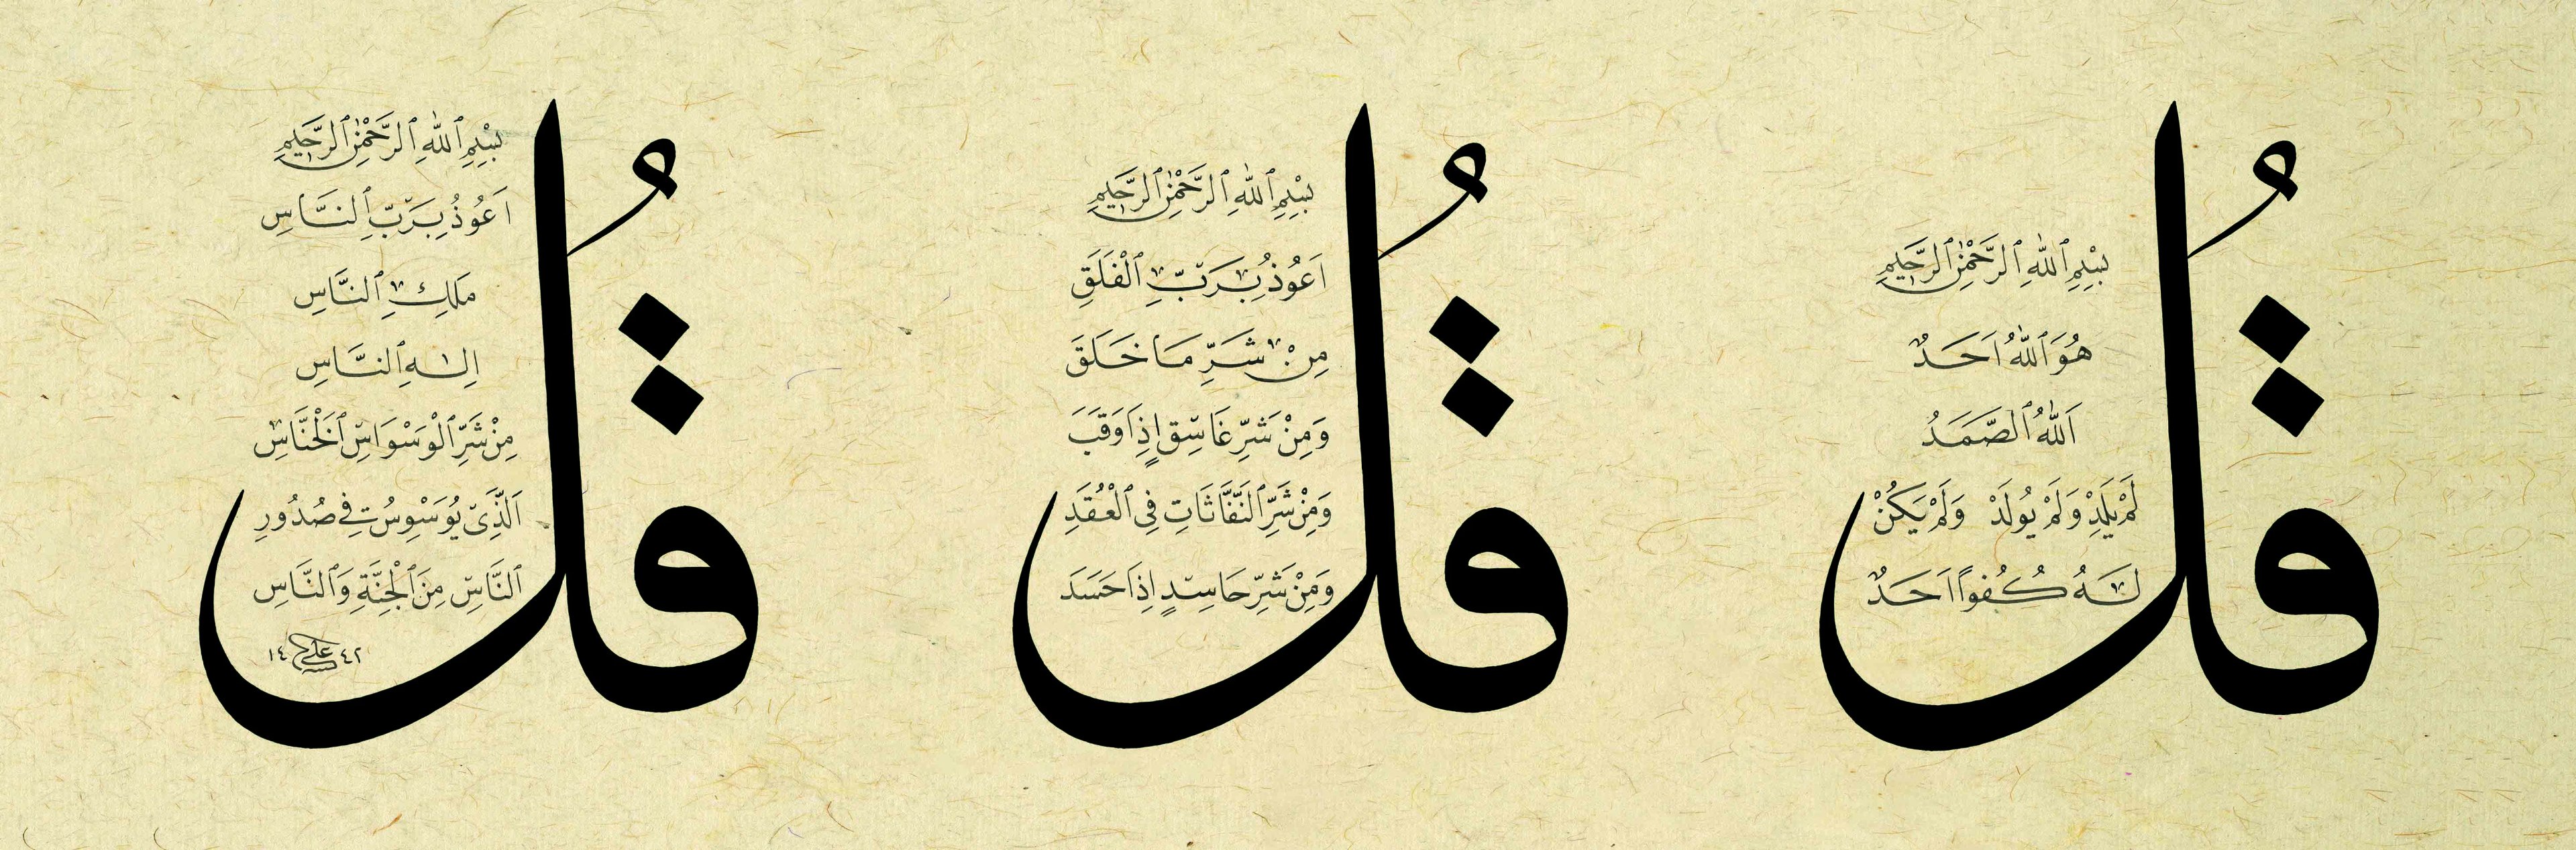 قُلْ
بِسْمِ ٱللّٰهِ ٱلرَّحْمٰنِ ٱلرَّحِيمِ
هُوَ ٱللّٰهُ اَحَدٌ
اَللّٰهُ ٱلصَّمَدُ
لَمْ يَلِدْ وَلَمْ يُولَدْ وَلَمْ يَكُنْ
لَهُ كُفُواً اَحَدٌ
قُلْ
بِسْمِ ٱللّٰهِ ٱلرَّحْمٰنِ ٱلرَّحِيمِ
اَعُوذُ بِرَبِّ ٱلْفَلَقِ
مِنْ شَرِّ مَا خَلَقَ
وَمِنْ شَرِّ غَاسِقٍ اِذَا وَقَبَ
وَمِنْ شَرِّ ٱلنَّفَّاثَاتِ فِي ٱلْعُقَدِ
وَمِنْ شَرِّ حَاسِدٍ اِذَا حَسَدَ
قُلْ
بِسْمِ ٱللّٰهِ ٱلرَّحْمٰنِ ٱلرَّحِيمِ
اَعُوذُ بِرَبِّ ٱلنَّاسِ
مَلِكِ ٱلنَّاسِ
اِلٰهِ ٱلنَّاسِ
مِنْ شَرِّ ٱلْوَسْوَاسِ ٱلْخَنَّاسِ
اَلَّذِى يُوَسْوِسُ فِي صُدُورِ
ٱلنَّاسِ مِنَ ٱلْجِنَّةِ وَٱلنَّاسِ
١٤٤٢